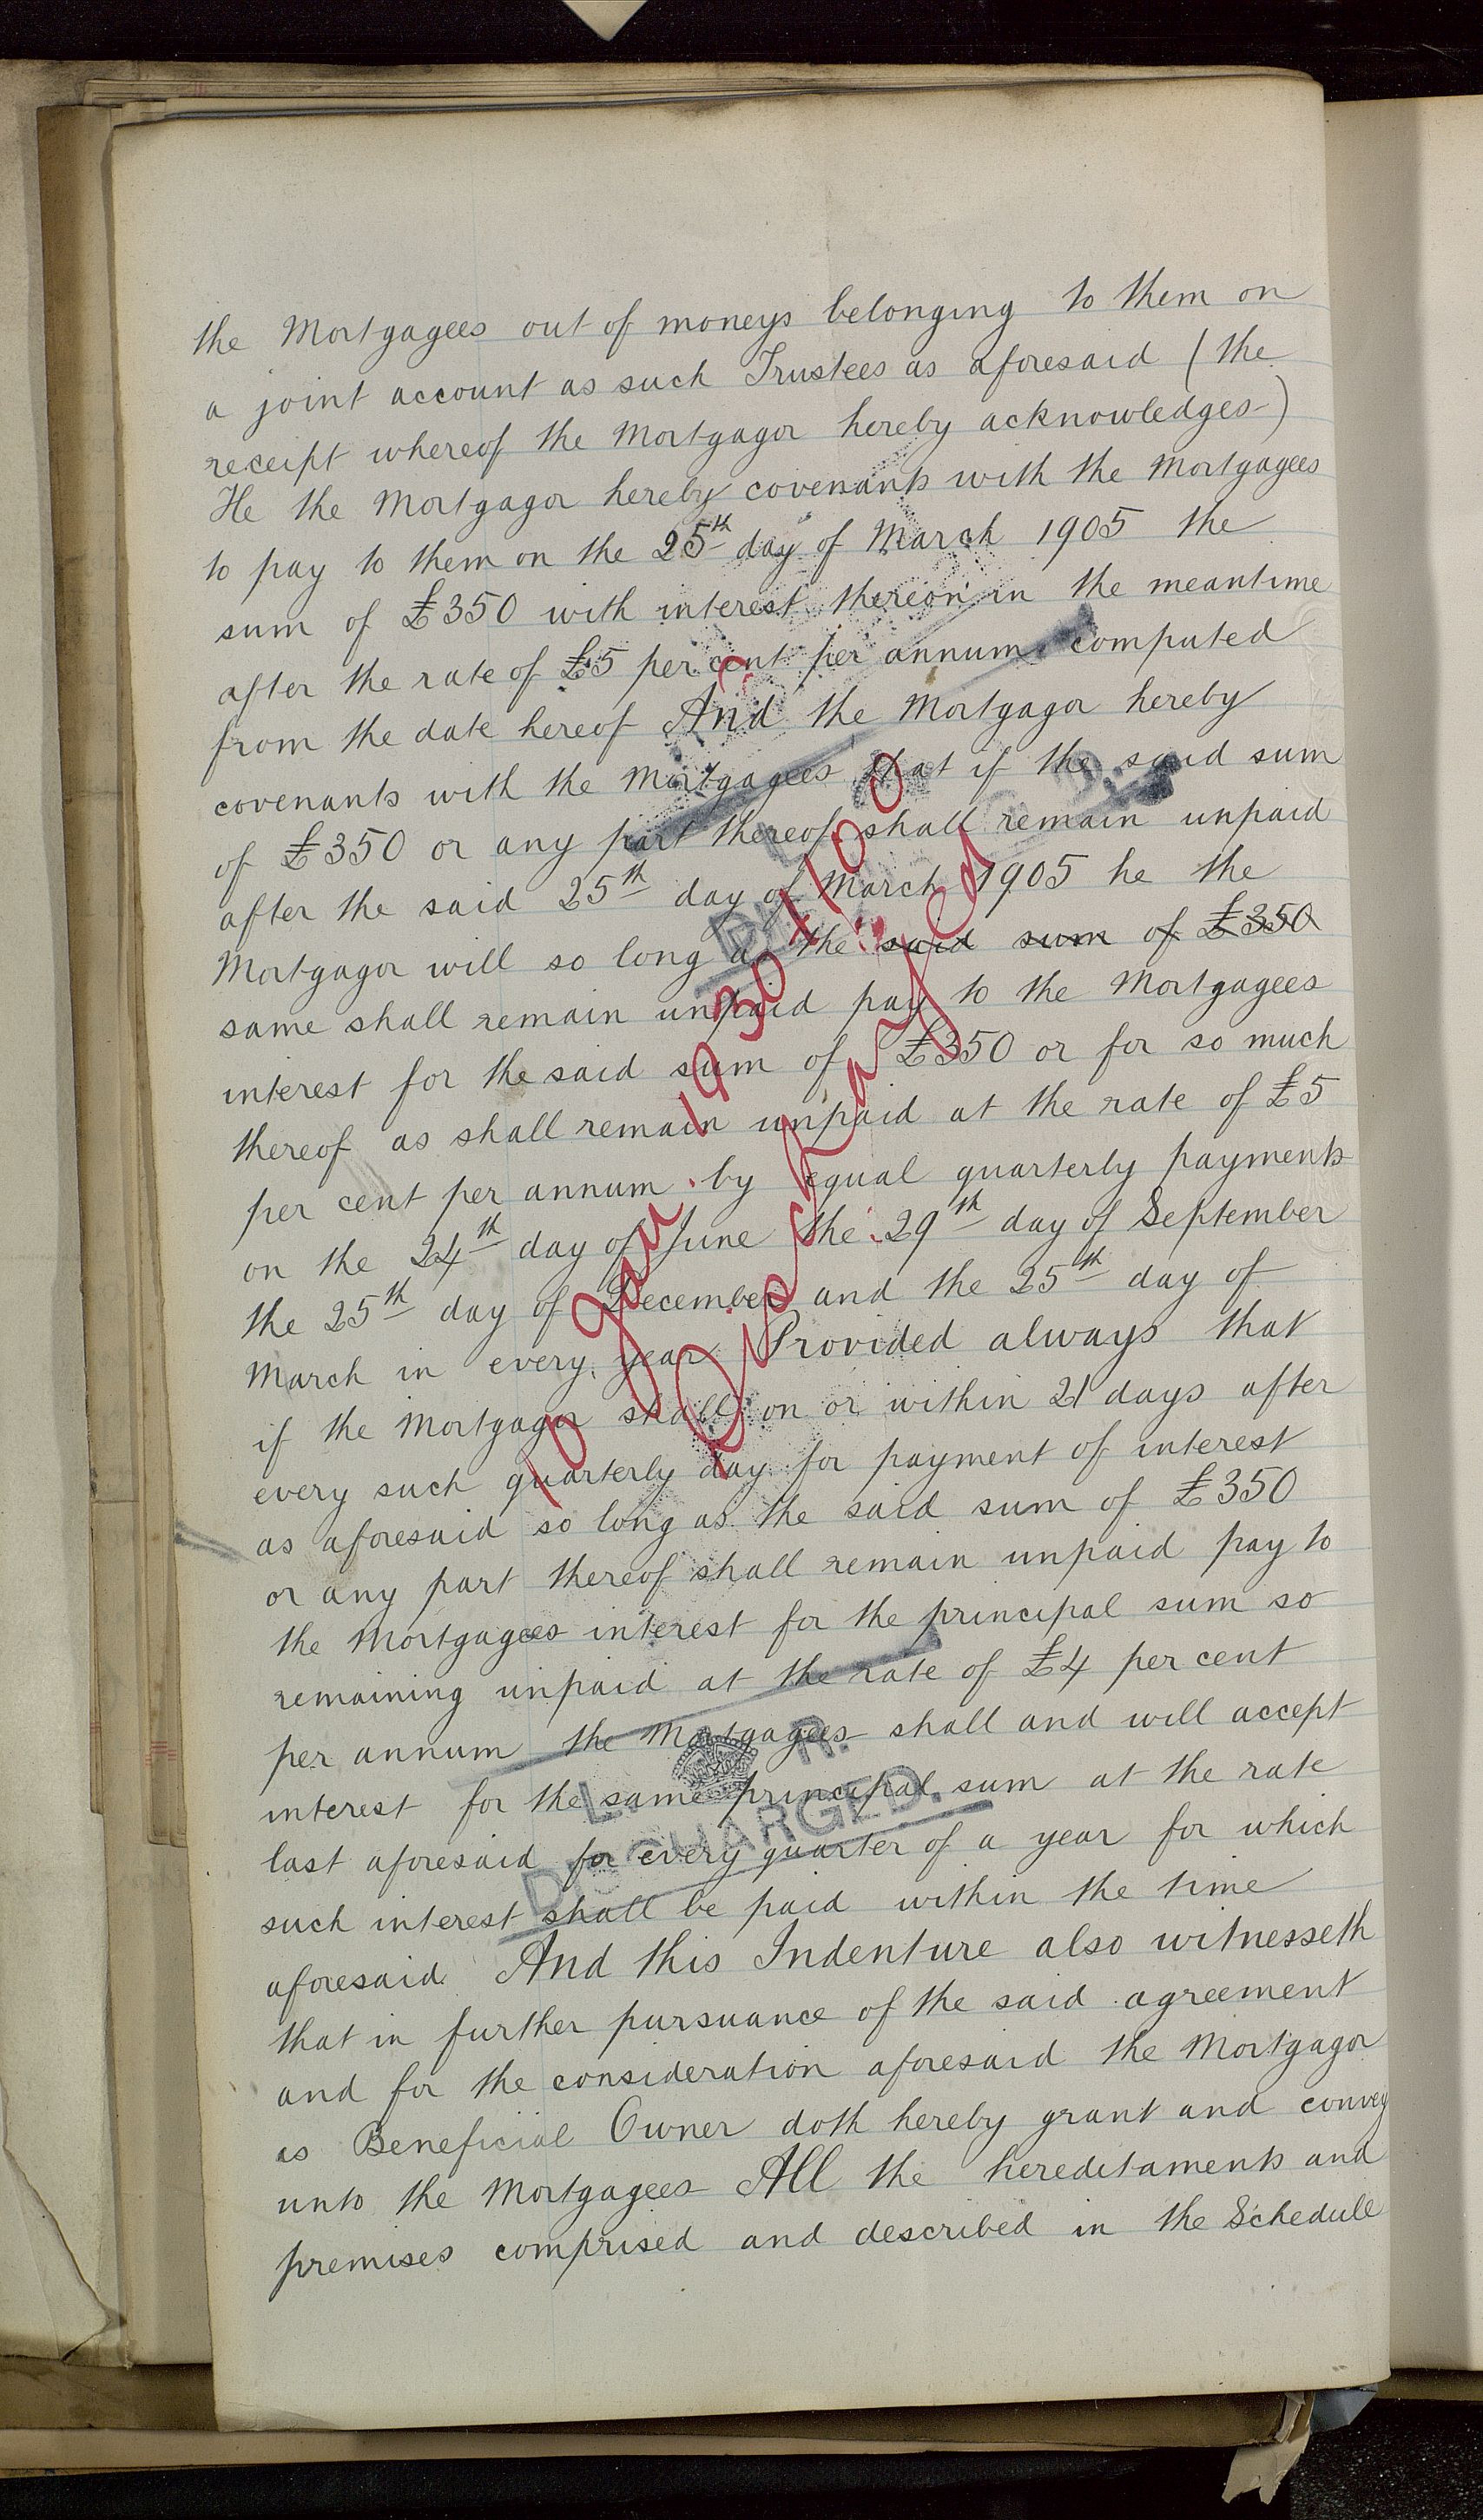 the Mortgagees out of moneys belonging to them on
a joint account as such Trustees as aforesaid (the
receipt whereof the Mortgagor hereby acknowledges)
He the Mortgagor hereby covenants with the Mortgagees
to pay to them on the 25th day of March 1905 the
sum of £350 with interest thereon in the meantime
after the rate of £5 per cent per annum computed
from the date hereof And the Mortgagor hereby
covenants with the Mortgagees that if the said sum
of £350 or any part thereof shall remain unpaid
after the said 25th day of March 1905 he the
Mortgagor will so long as the said sum of £350
same shall remain unpaid pay to the Mortgagees
interest for the said sum of £350 or for so much
thereof as shall remain unpaid at the rate of £5
per cent per annum by equal quarterly payments
on the 24th day of June the 29th day of September
the 25th day of December and the 25th day of
March in every year Provided always that
if the Mortgagor shall on or within 21 days after
every such quarterly day for payment of interest
as aforesaid so long as the said sum of £350
or any part thereof shall remain unpaid pay to
the Mortgagees interest for the principal sum so
remaining unpaid at the rate of £4 per cent
per annum the Mortgagees shall and will accept
interest for the same principal sum at the rate
last aforesaid for every quarter of a year for which
such interest shall be paid within the time
aforesaid And this Indenture also witnesseth
that in further pursuance of the said agreement
and for the consideration aforesaid the Mortgagor
as Beneficial Owner doth hereby grant and convey
unto the Mortgagees All the hereditaments and
premises comprised and described in the Schedule
10 Jan. 1930
Discharged
L. R.
DISCHARGED.